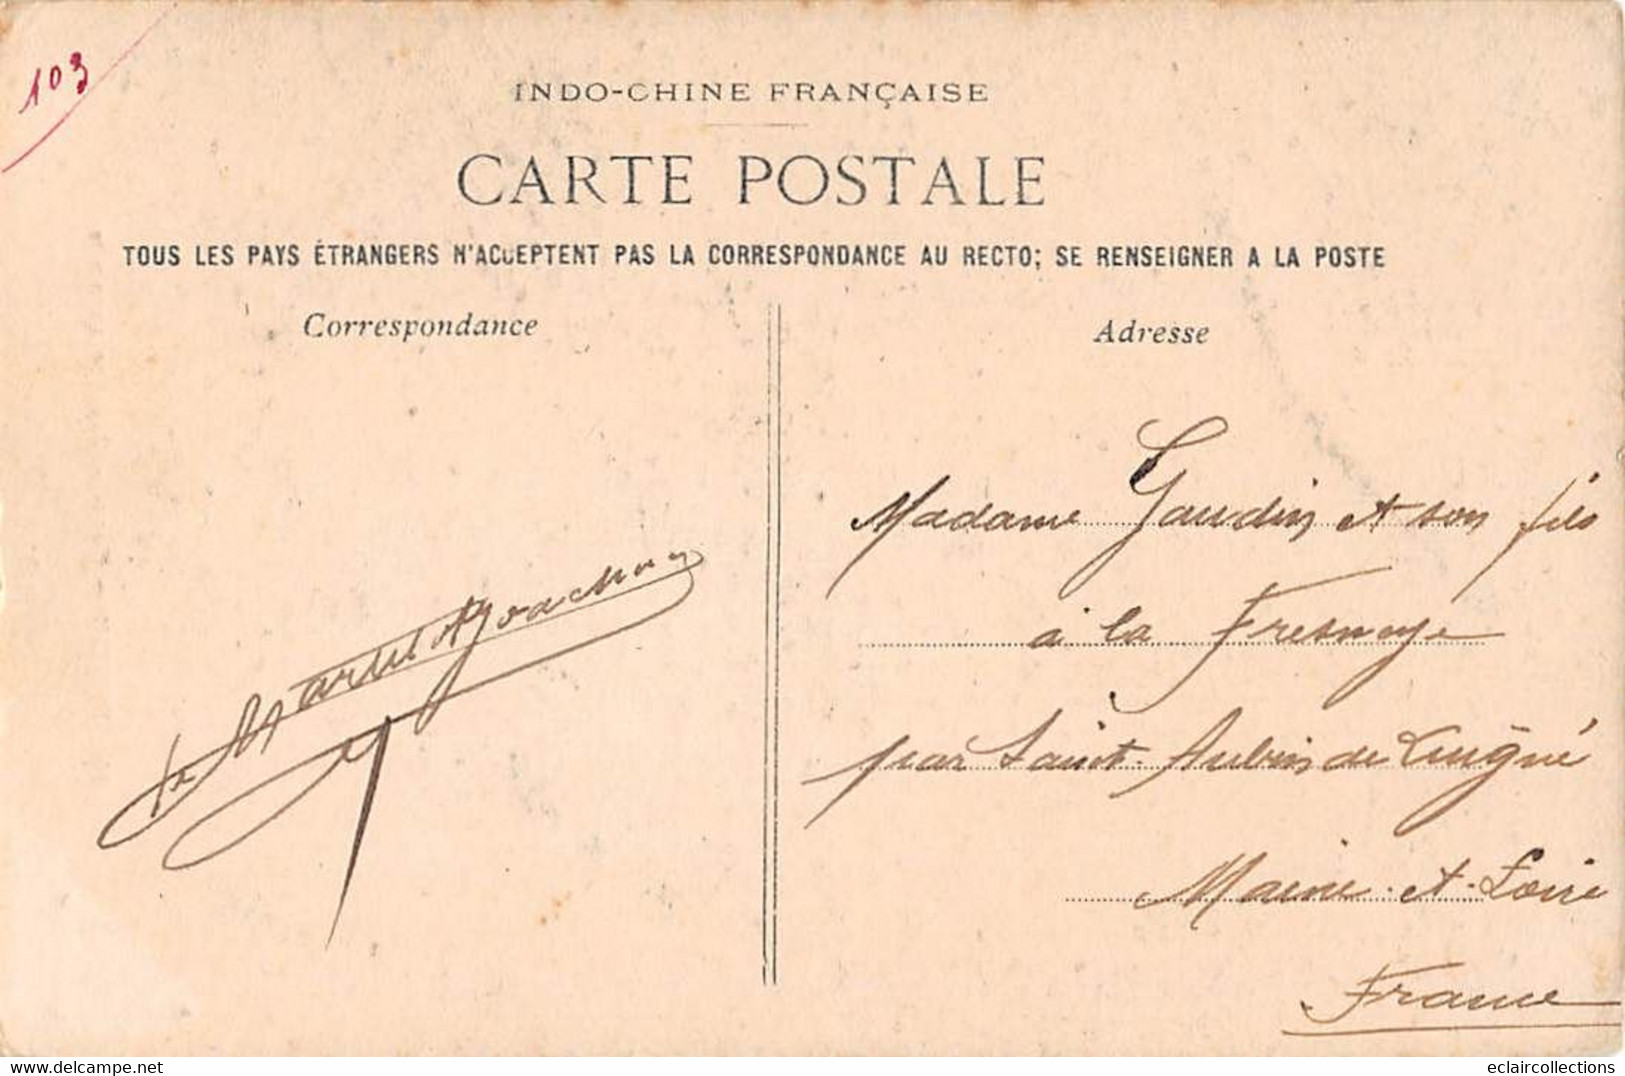 103
INDO-CHINE FRANÇAISE
CARTE POSTALE
TOUS LES PAYS ÉTRANGERS N'ACCEPTENT PAS LA CORRESPONDANCE AU RECTO; SE RENSEIGNER A LA POSTE
Correspondance
Adresse
Madame Gaudin et son fils
à la Fresnaye
par Saint-Aubin de Luigné
Maine-et-Loire
France
eclaircollections